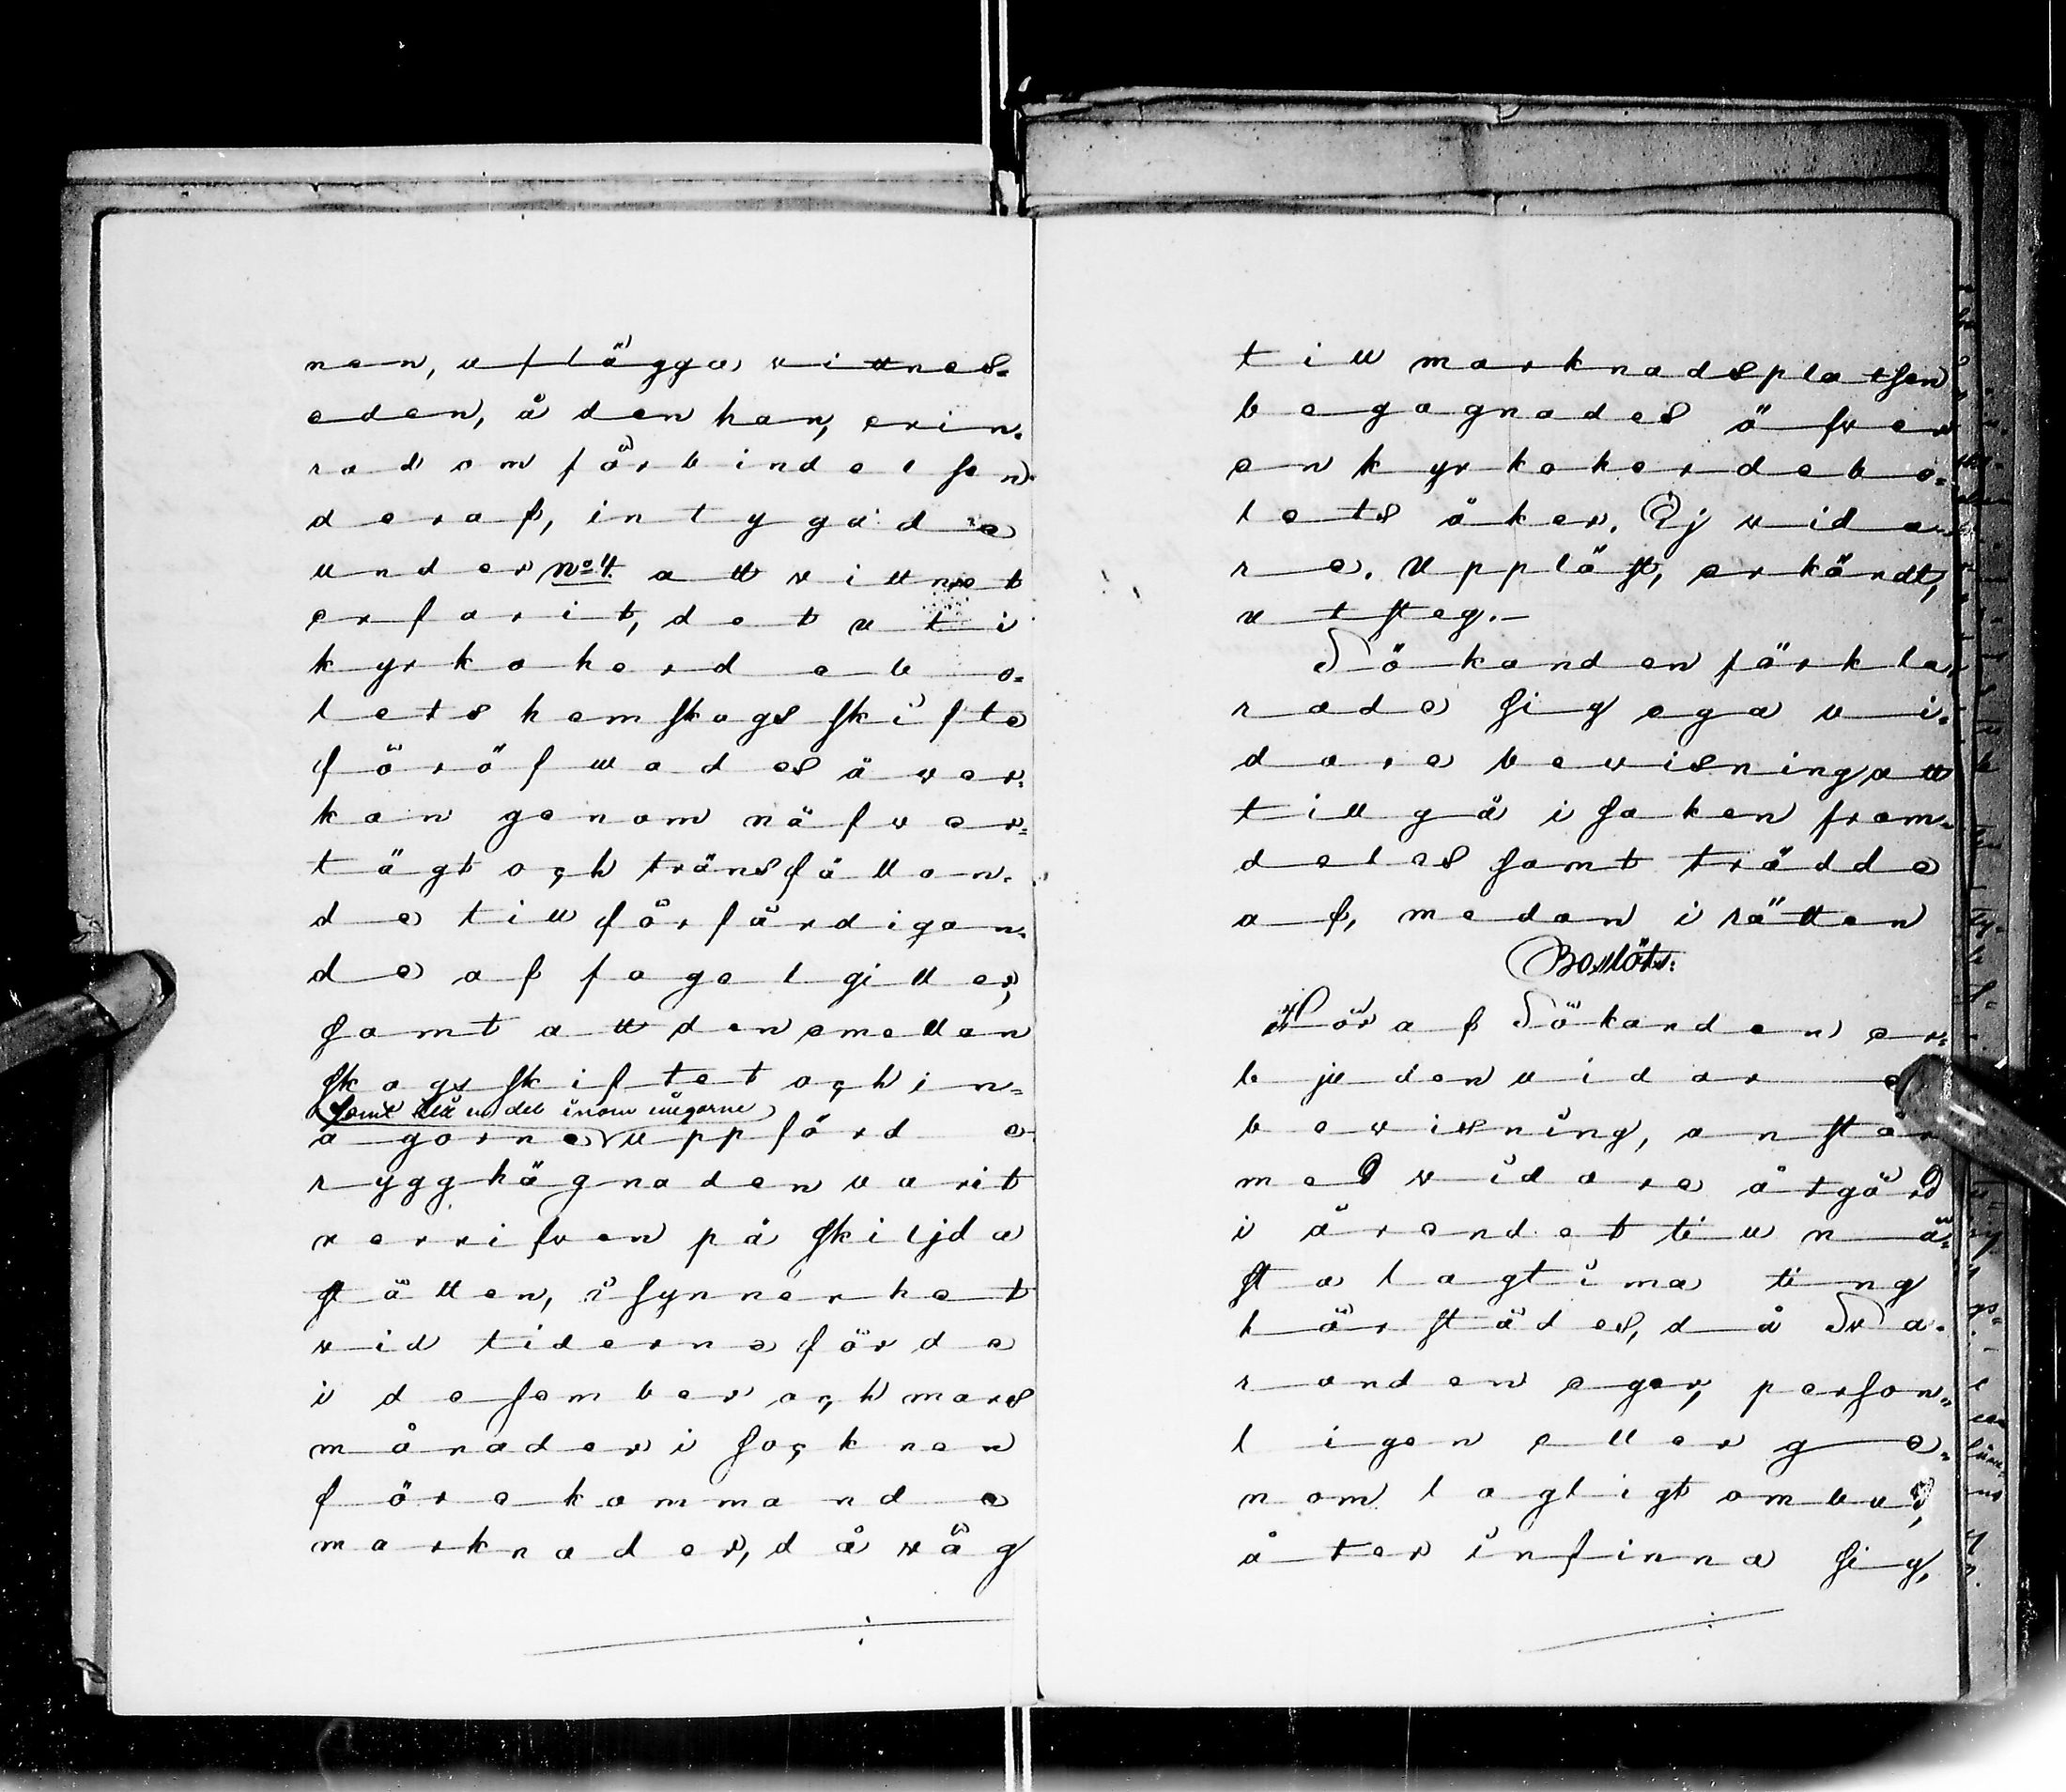 nen, aflägga wittnes-
eden, å den han, erin-
rad om förbindelsen
deraf, intygade
under No 4. att wittnet
erfarit, det uti
kyrkoherdebo-
lets hemskogsskifte
föröfwades åwer-
kan genom näfwer-
tägt och tränsfällan-
de till förfärdigan-
de af fogelgiller,
samt att den emellan
skogsskiftet och in-
samt del inom inägorne
ägorne uppförde
rygghägnaden varit
nerrifven på skiljda
ställen, i synnerhet
wid tiderne förde
i desember och mars
månader i socknen
förekommande
marknader, då wäg
till marknadsplatsen
begagnades öfwer
en kyrkoherdebo-
lets åker. Ej wida-
re. Uppläst, erkändt,
utsteg.-
Sökanden förkla-
rade sig ega vi-
dare bewisning att
tillgå i saken fram-
deles samt trädde
af, medan i rätten
Beslöts:
För af Sökanden er-
bjuden vidare
bewisning, anstår
med widare åtgärd
i ärendet till nä-
sta lagtima ting
härstädes, då Swa-
randen eger, person-
ligen eller ge-
nom lagligt ombud,
åter infinna sig,